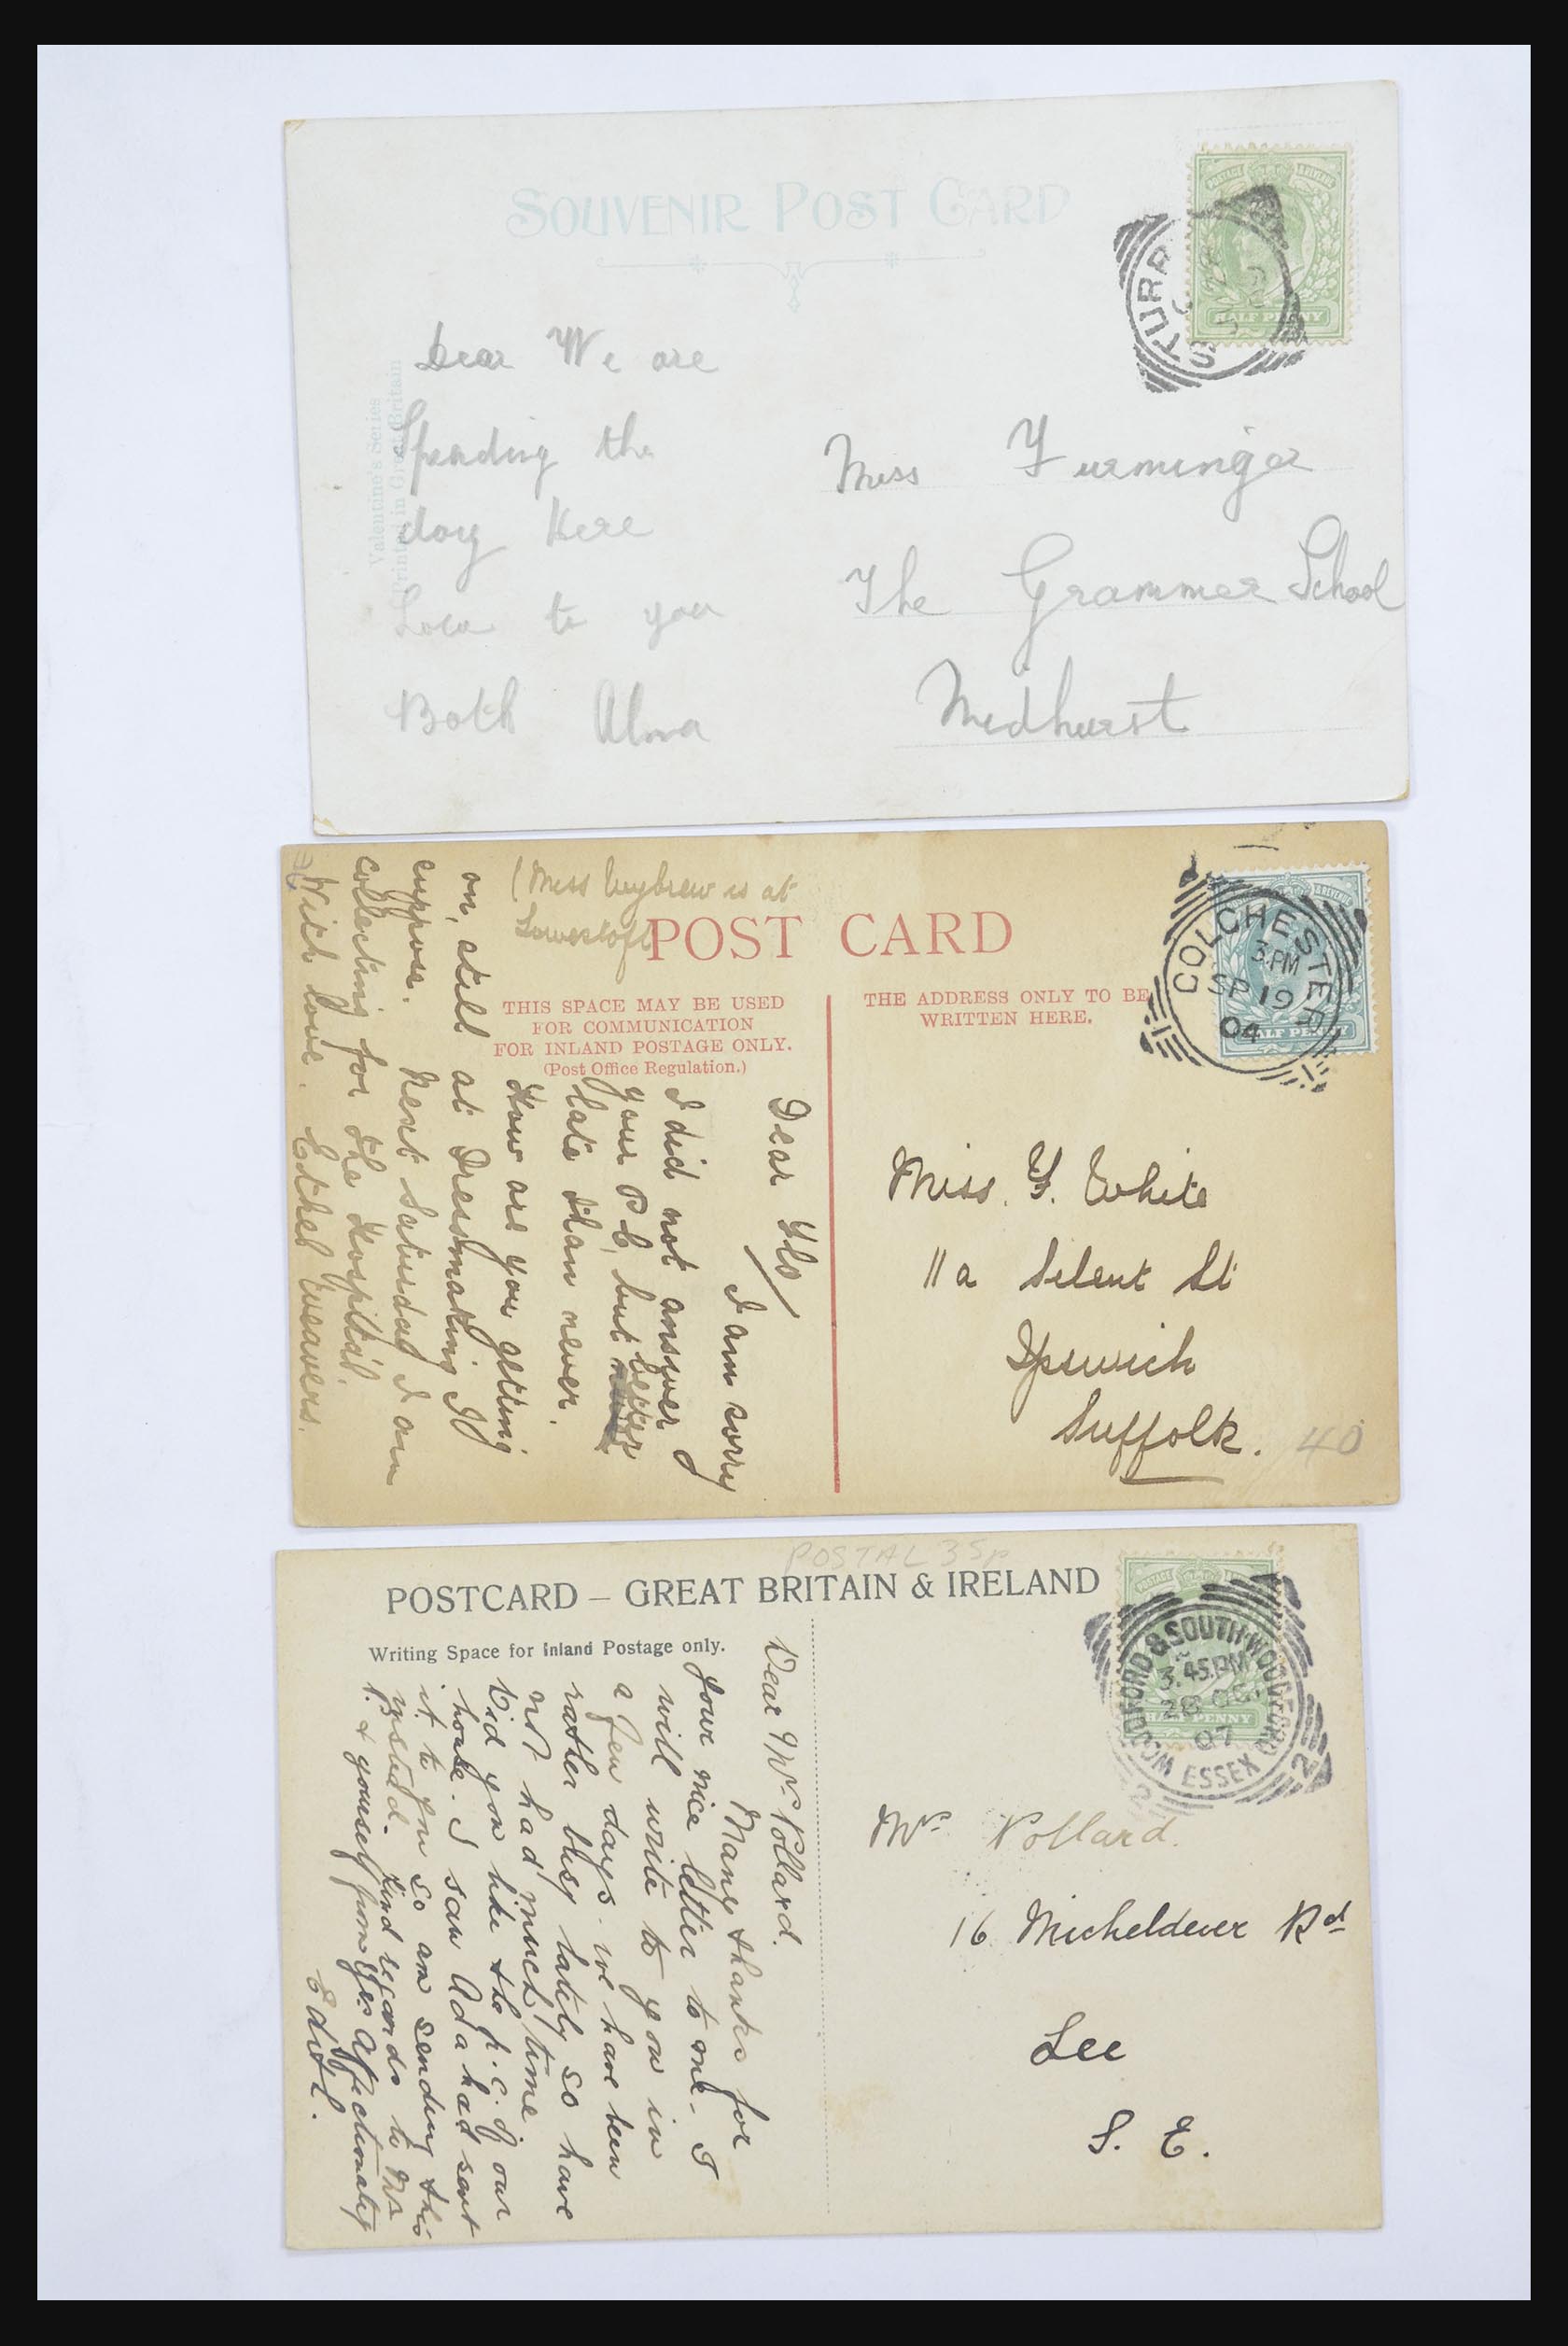 SOUVENIR POST CARD
Valentine's Series
Printed in Great Britain
POSTAGE & REVENUE
HALF PENNY
STURR
Dear We are
Spending the
day Here
Love to you
Both Alma
Miss Furminger
The Grammer School
Midhurst
POST CARD
THIS SPACE MAY BE USED
FOR COMMUNICATION
FOR INLAND POSTAGE ONLY.
(Post Office Regulation.)
THE ADDRESS ONLY TO BE
WRITTEN HERE.
HALF PENNY
COLCHESTER
3.PM
SP 19
04
(Miss is at
Lowestoft
Dear Flo
I am sorry
I did not answer
your P C, but better
late than never.
How are you getting
on, still at Dressmaking I
suppose. Next Saturday I am
collecting for the Hospital.
With love. Ethel Weavers.
Miss. F. White
11a Silent St
Ipswich
Suffolk.
40
POSTAL 35p
POSTCARD – GREAT BRITAIN & IRELAND
Writing Space for Inland Postage only.
POSTAGE & REVENUE
HALF PENNY
WOODFORD & SOUTH WOODFORD
3.45.PM
28 OC
07
COM ESSEX
2
Dear Mrs Pollard.
Many thanks for
your nice letter to me – I
will write to you in
a few days. we have been
rather busy lately so have
not had much time
Did you like the p.c. of our
house. I saw Ada had sent
it to you so am sending this
instead. Kind regards to Mr
P. & yourself from yrs Affectionately
Edith.
Mrs Pollard.
16 Micheldever Rd
Lee
S. E.